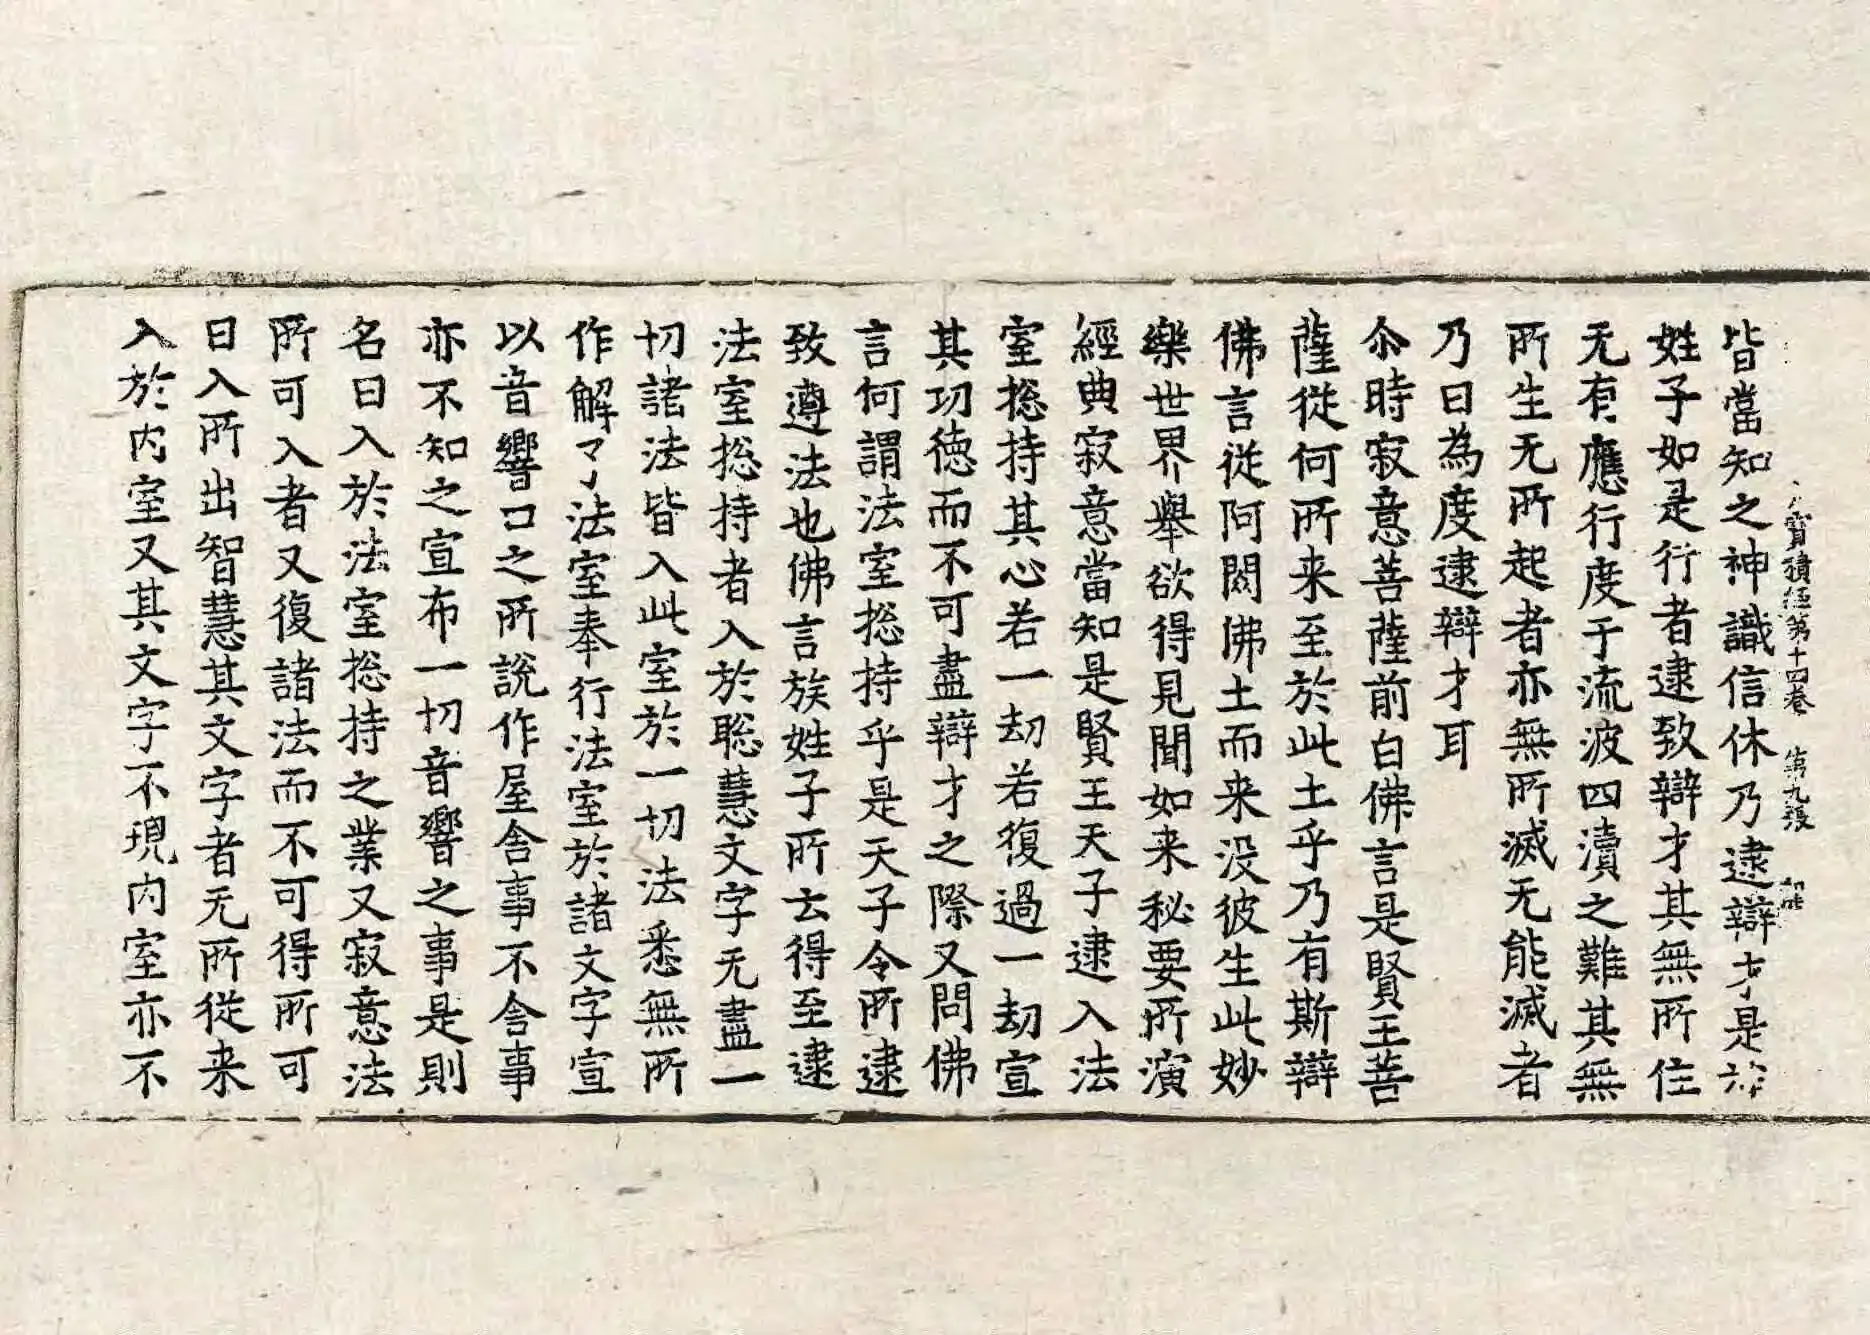 寳積経第十四卷 第九張
皆當知之神識信休乃逮辯才是
姓子如是行者逮致辯才其無所住
无有應行度于流波四瀆之難其無
所生无所起者亦無所滅无能滅者
乃曰為度逮辯才耳
尒時寂意菩薩前白佛言是賢王菩
薩從何所来至於此土乎乃有斯辯
佛言從阿閦佛土而来没彼生此妙
樂世界舉欲得見聞如来秘要所演
經典寂意當知是賢王天子逮入法
室捴持其心若一劫若復過一劫宣
其功德而不可盡辯才之際又問佛
言何謂法室捴持乎是天子令所逮
致遵法也佛言族姓子所去得至逮
法室捴持者入於聡慧文字无盡一
切諸法皆入此室於一切法悉無所
作解了法室奉行法室於諸文字宣
以音響口之所説作屋舎事不舎事
亦不知之宣布一切音響之事是則
名曰入於法室捴持之業又寂意法
所可入者又復諸法而不可得所可
曰入所出智慧其文字者无所從来
入於内室又其文字不現内室亦不